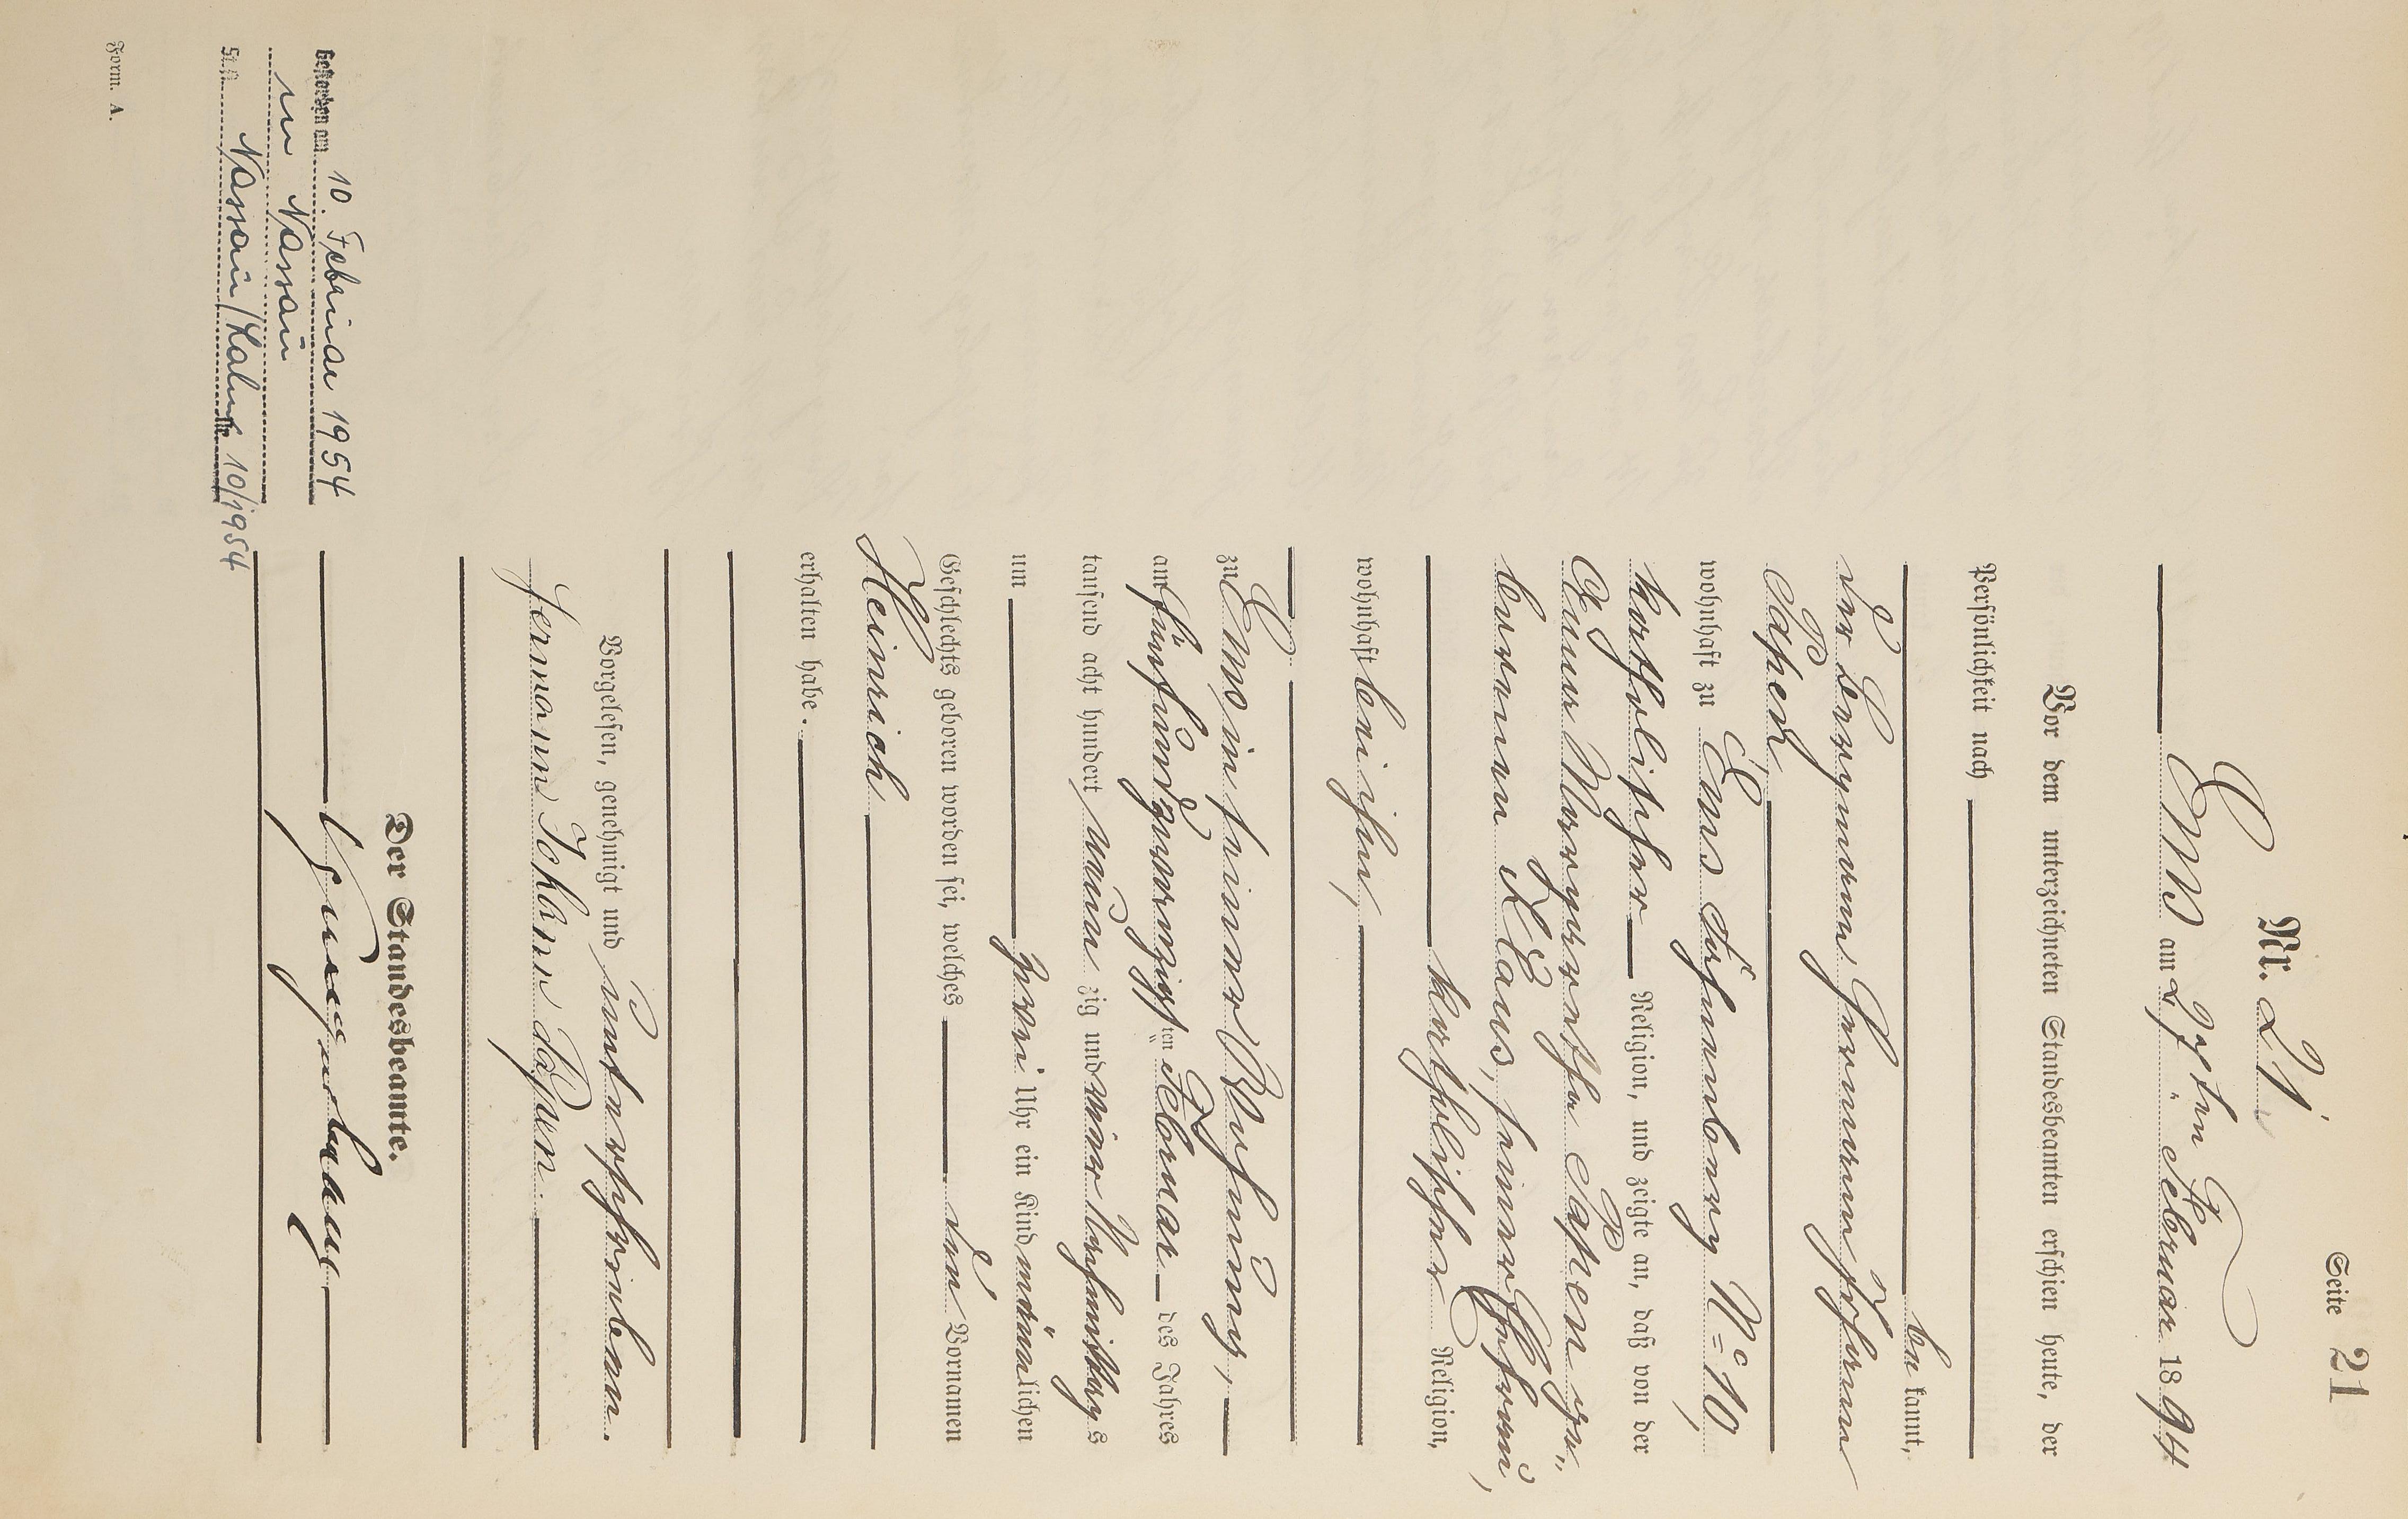 Seite 21
Nr. 21
Ems am 27ten Februar 1894
Vor dem unterzeichneten Standesbeamten erschien heute, der
Persönlichkeit nach
be kannt,
der Bergmann Hermann Johann
Papen
wohnhaft zu Ems Achenberg No 10,
katholischer Religion, und zeigte an, daß von der
Anna Margarethe Papen ge-
borenen Klaus, seiner Ehefrau,
katholischer Religion,
wohnhaft bei ihm,
zu Ems in seiner Wohnung,
am fünfundzwanzigsten Februar des Jahres
tausend acht hundert neun zig und vier Nachmittags
um zwei Uhr ein Kind männlichen
Geschlechts geboren worden sei, welches den Vornamen
Heinrich
erhalten habe.
Vorgelesen, genehmigt und unterschrieben.
Hermann Johann Papen
Der Standesbeamte.
Gestorben am 10. Februar 1954
in Nassau
St.A. Nassau/Lahn Nr. 10/1954
Form. A.